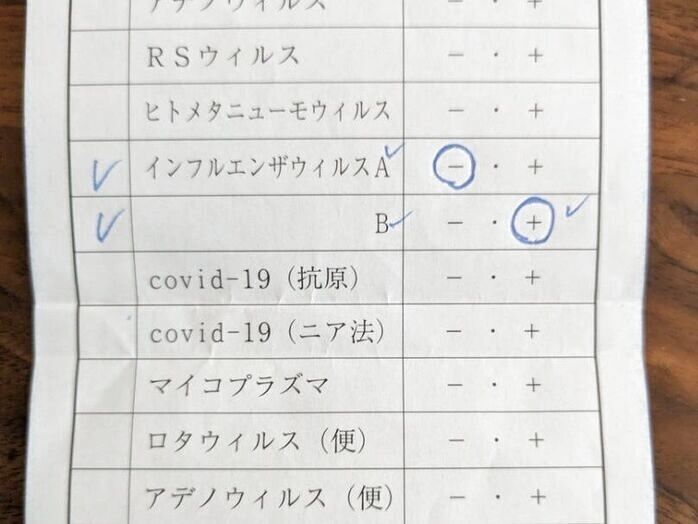 アデノウィルス － ・ ＋
ＲＳウィルス － ・ ＋
ヒトメタニューモウィルス － ・ ＋
✓ インフルエンザウィルスA ✓ － ・ ＋
✓ B ✓ － ・ ＋ ✓
covid-19（抗原） － ・ ＋
covid-19（ニア法） － ・ ＋
マイコプラズマ － ・ ＋
ロタウィルス（便） － ・ ＋
アデノウィルス（便） － ・ ＋